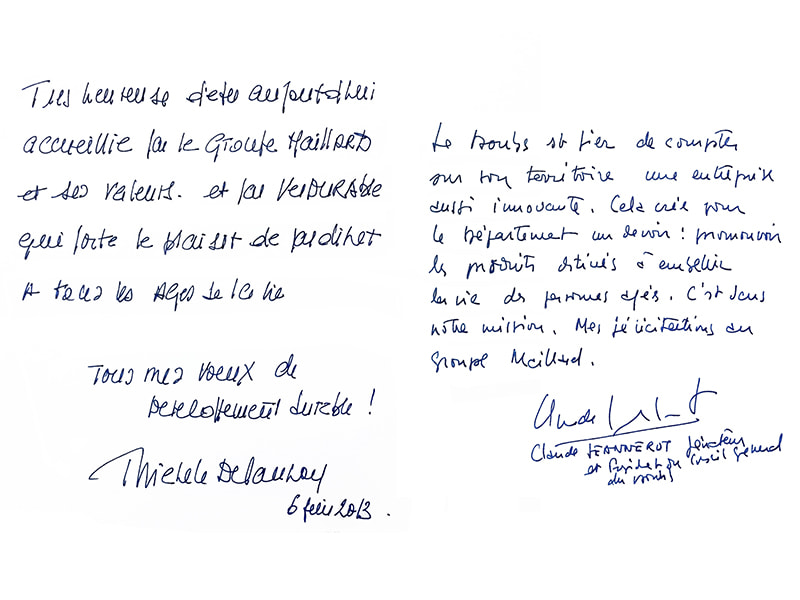 Très heureuse d'être aujourd'hui
accueillie par le Groupe MAILLARD
et ses valeurs. et par VERDURABLE
qui porte le plaisir de jardiner
A tous les Ages de la vie
Tous mes voeux de
Developpement durable !
Michèle Delaunay
6 fév 2013.
Le Doubs est fier de compter
sur son territoire une entreprise
aussi innovante. Cela crée pour
le Département un devoir : promouvoir
les produits destinés à embellir
la vie des personnes agés. C'est dans
notre mission. Mes félicitations au
Groupe Maillard.
Claude JEANNEROT Sénateur
et Président du Conseil Général
du Doubs